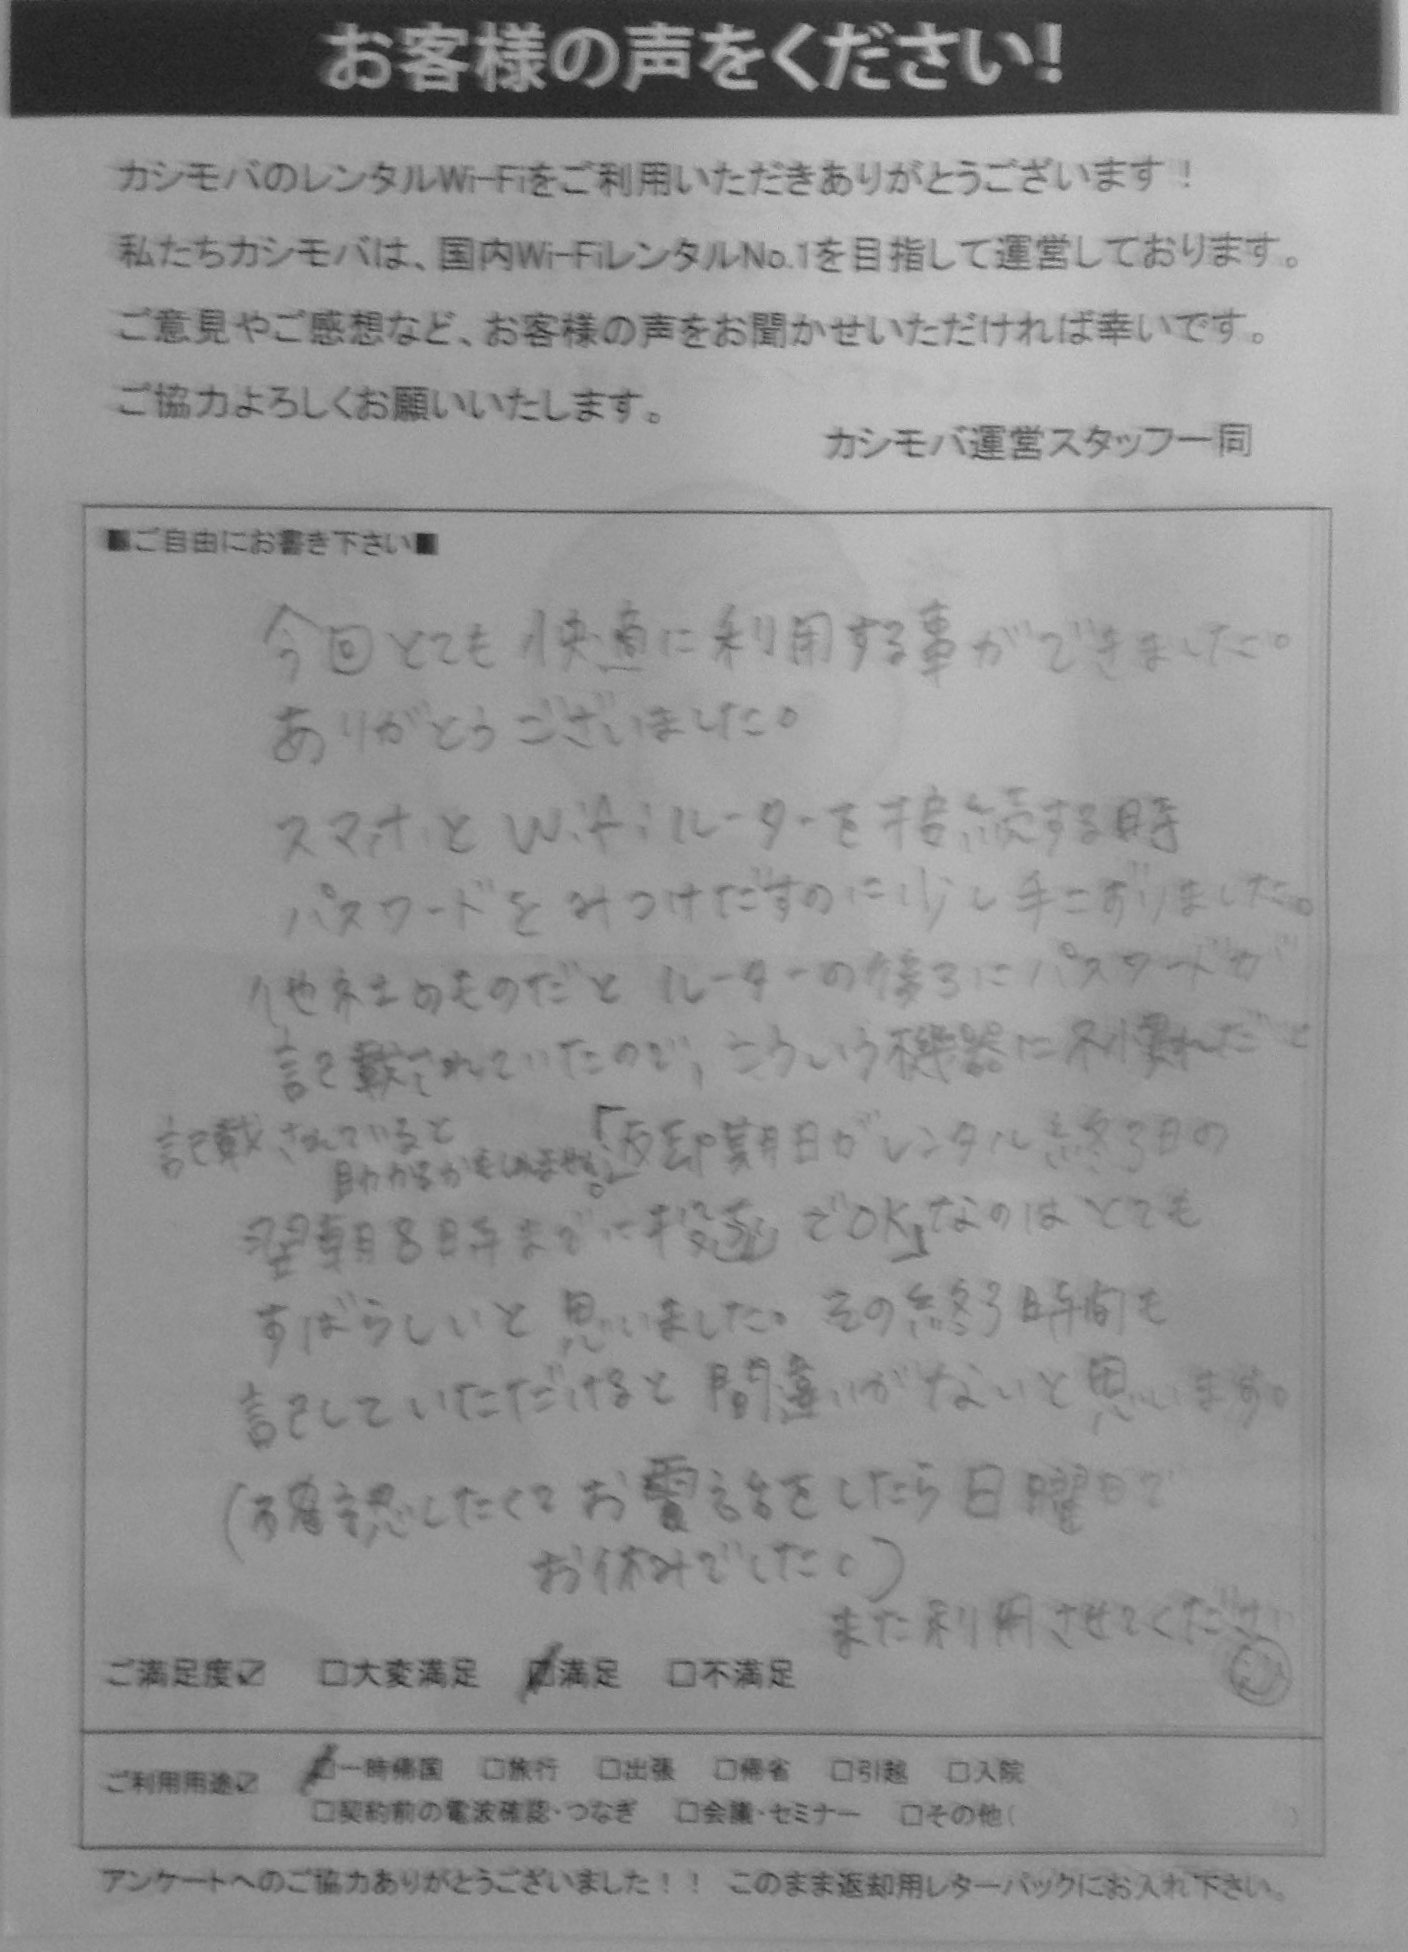 お客様の声をください!
カシモバのレンタルWi-Fiをご利用いただきありがとうございます！
私たちカシモバは、国内Wi-FiレンタルNo.1を目指して運営しております。
ご意見やご感想など、お客様の声をお聞かせいただければ幸いです。
ご協力よろしくお願いいたします。
カシモバ運営スタッフ一同
■ご自由にお書き下さい■
今回とても快適に利用する事ができました。
ありがとうございました。
スマホとWifiルーターを接続する時
パスワードをみつけだすのに少し手こずりました。
他社のものだとルーターの後ろにパスワードが
記載されていたので、こういう機器に不慣れだと
記載されていると
助かるかもしれません。
「返却期日がレンタル終了日の
翌朝8時までに投函でOK」なのはとても
すばらしいと思いました。その終了時間も
記していただけると間違いがないと思います。
(確認したくてお電話をしたら日曜日で
お休みでした。)
また利用させてください
ご満足度☑ □大変満足 ☑満足 □不満足
ご利用用途☑ ☑一時帰国 □旅行 □出張 □帰省 □引越 □入院
□契約前の電波確認・つなぎ □会議・セミナー □その他( )
アンケートへのご協力ありがとうございました！！ このまま返却用レターパックにお入れ下さい。